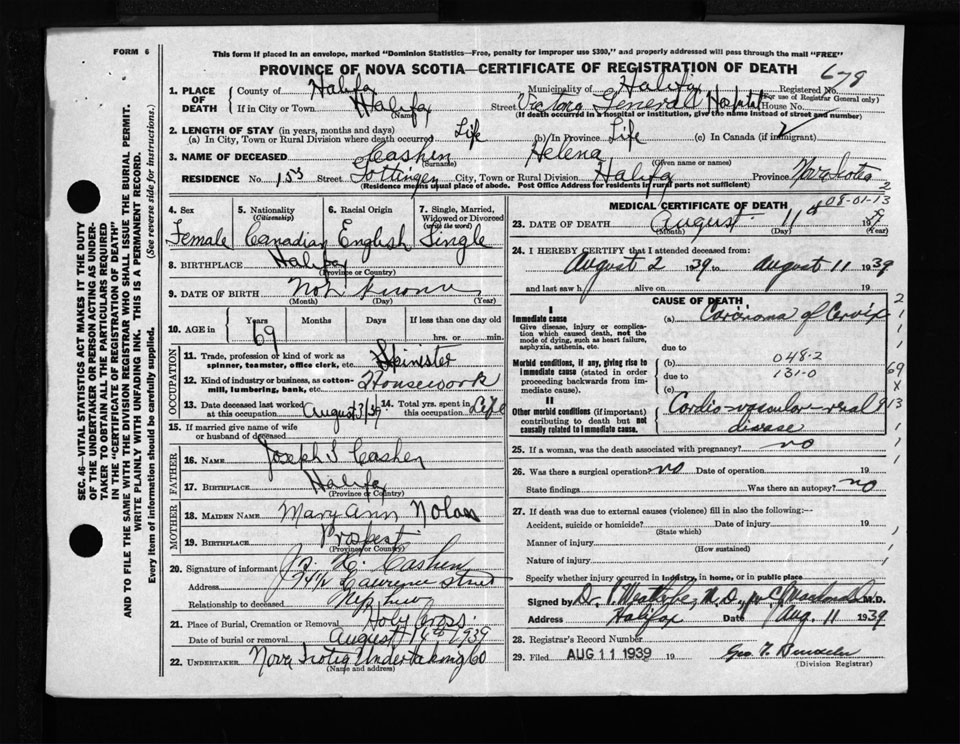 FORM 6
This form if placed in an envelope, marked "Dominion Statistics—Free, penalty for improper use $300," and properly addressed will pass through the mail "FREE"
PROVINCE OF NOVA SCOTIA—CERTIFICATE OF REGISTRATION OF DEATH
678
1. PLACE OF DEATH
County of Halifax Municipality of Halifax Registered No.
(For use of Registrar General only)
If in City or Town Halifax Street Victoria General Hospital House No.
(Name) (If death occurred in a hospital or institution, give the name instead of street and number)
2. LENGTH OF STAY (in years, months and days)
(a) In City, Town or Rural Division where death occurred Life (b) In Province Life (c) In Canada (if immigrant)
3. NAME OF DECEASED Cashen Helena
(Surname) (Given name or names)
RESIDENCE No. 153 Street Gottingen City, Town or Rural Division Halifax Province Nova Scotia
(Residence means usual place of abode. Post Office Address for residents in rural parts not sufficient)
4. Sex 5. Nationality (Citizenship) 6. Racial Origin 7. Single, Married, Widowed or Divorced (write the word)
Female Canadian English Single
8. BIRTHPLACE Halifax
(Province or Country)
9. DATE OF BIRTH Not known
(Month) (Day) (Year)
10. AGE in Years Months Days If less than one day
69 hrs. or min.
OCCUPATION
11. Trade, profession or kind of work as spinner, teamster, office clerk, etc. Spinster
12. Kind of industry or business, as cotton-mill, lumbering, bank, etc. Housework
13. Date deceased last worked at this occupation August 14. Total yrs. spent in this occupation Life
15. If married give name of wife or husband of deceased
FATHER
16. NAME Joseph Cashen
17. BIRTHPLACE Halifax
(Province or Country)
MOTHER
18. MAIDEN NAME Mary Ann Nolan
19. BIRTHPLACE Prospect
(Province or Country)
20. Signature of informant Cashen
Address Lawrence Street
Relationship to deceased Nephew
21. Place of Burial, Cremation or Removal Holy Cross
Date of burial or removal August 14th 1939
22. UNDERTAKER Nova Scotia Undertaking Co
(Name and address)
MEDICAL CERTIFICATE OF DEATH
08-01-13
23. DATE OF DEATH August 11th 19
(Month) (Day) (Year)
24. I HEREBY CERTIFY that I attended deceased from:
August 2 1939 to August 11 1939
and last saw h alive on 19
CAUSE OF DEATH
I
Immediate cause (a) Carcinoma of Cervix
Give disease, injury or complication which caused death, not the mode of dying, such as heart failure, asphyxia, asthenia, etc.
due to
Morbid conditions, if any, giving rise to immediate cause (stated in order proceeding backwards from immediate cause).
(b) 048-2
due to 131-0
(c)
II
Other morbid conditions (if important) contributing to death but not causally related to immediate cause.
Cardio-vascular-renal disease
25. If a woman, was the death associated with pregnancy? no
26. Was there a surgical operation? no Date of operation 19
State findings Was there an autopsy? no
27. If death was due to external causes (violence) fill in also the following:—
Accident, suicide or homicide? Date of injury 19
(State which)
Manner of injury
(How sustained)
Nature of injury
Specify whether injury occurred in industry, in home, or in public place
Signed by Dr. M.D.
Address Halifax Date Aug. 11 1939
28. Registrar's Record Number
29. Filed AUG 11 1939 19 Geo. T.
(Division Registrar)
SEC. 46—VITAL STATISTICS ACT MAKES IT THE DUTY
OF THE UNDERTAKER OR PERSON ACTING AS UNDER-
TAKER TO OBTAIN ALL THE PARTICULARS REQUIRED
IN THE "CERTIFICATE OF REGISTRATION OF DEATH"
AND TO FILE THE SAME WITH THE DIVISION REGISTRAR WHO SHALL ISSUE THE BURIAL PERMIT.
WRITE PLAINLY WITH UNFADING INK. THIS IS A PERMANENT RECORD.
Every item of information should be carefully supplied. (See reverse side for instructions.)